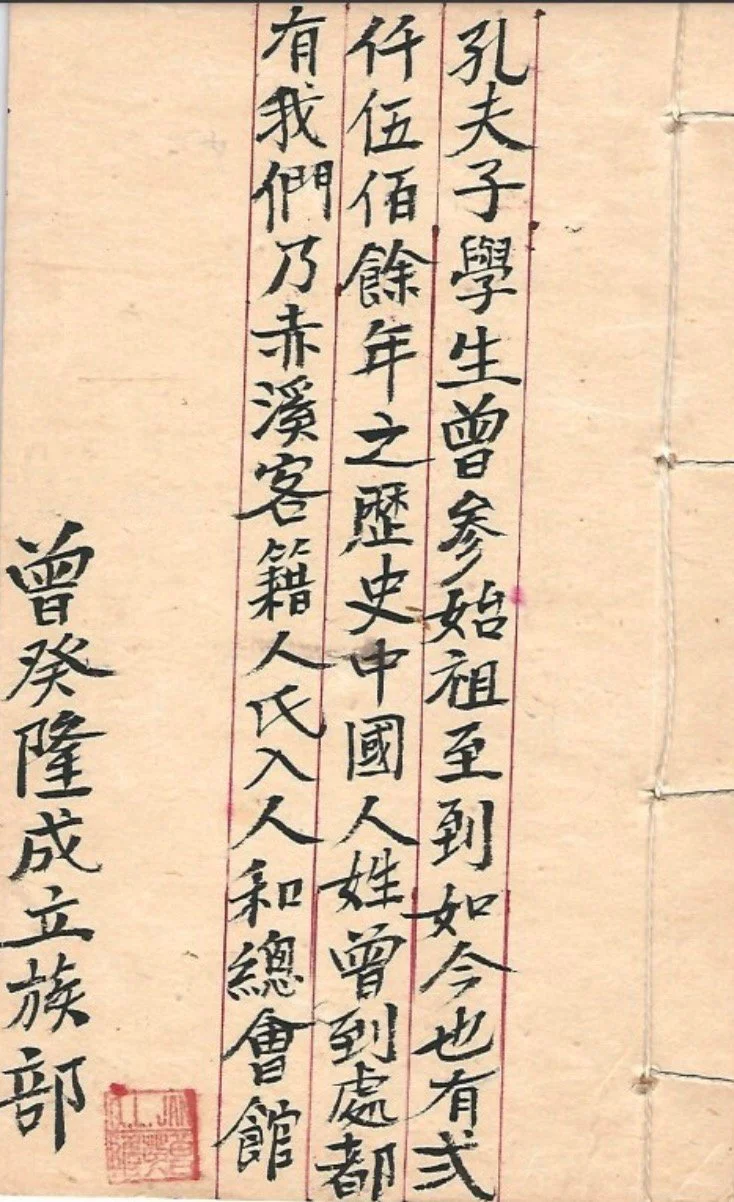 孔夫子學生曾參始祖至到如今也有弍
仟伍佰餘年之歷史中國人姓曾到處都
有我們乃赤溪客籍人氏入人和總會館
曾癸隆成立族部